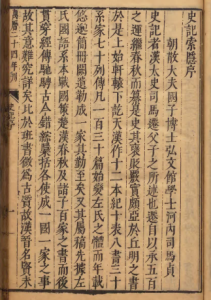 史記索隱序
朝散大夫國子博士弘文館學士河內司馬貞
史記者漢太史司馬遷父子之所述也遷自以承五百
之運繼春秋而纂是史其褒貶覈實頗亞於丘明之書
於是上始軒轅下訖天漢作十二本紀十表八書三十
系家七十列傳凡一百三十篇始變左氏之體而年載
悠邈簡冊闕遺勒成一家其勤至矣又其屬稿先據左
氏國語系本戰國策楚漢春秋及諸子百家之書而後
貫穿經傳馳騁古今錯綜隱括各使成一國一家之事
故其意難究詳矣比於班書微為古質故漢晉名賢未
二十四年刊
史記序